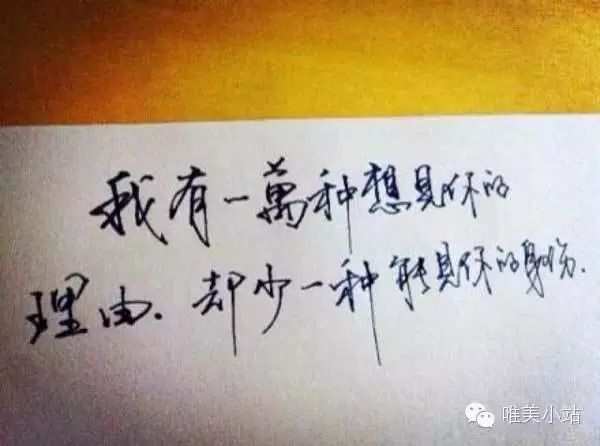 我有一萬种想見你的
理由.却少一种能見你的身份.
唯美小站